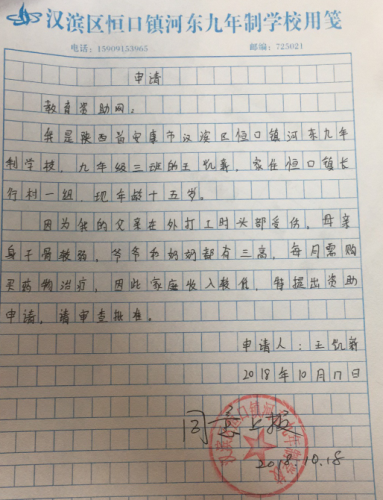 汉滨区恒口镇河东九年制学校用笺
电话：15009153965 邮编：725021
申请
教育资助网：
我是陕西省安康市汉滨区恒口镇河东九年
制学校，九年级三班的王凯新，家住恒口镇长
行村一组，现年龄十五岁。
因为我的父亲在外打工时头部受伤，母亲
身子骨较弱，爷爷和奶奶都有三高，每月需购
买药物治疗，因此家庭收入较低，特提出资助
申请，请审查批准。
申请人：王凯新
2018年10月17日
同意上报
2018.10.18